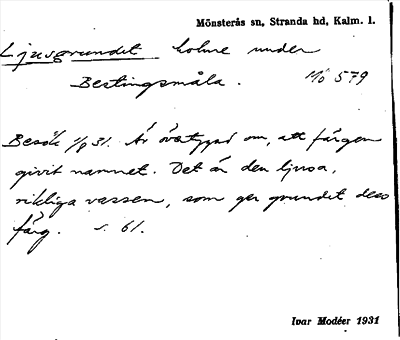 Mönsterås sn, Stranda hd, Kalm. l.
Ljusgrundet holme under
Bestingsmåla. Mö 579
Besök 1/9 31. Är övertygad om, att färgen
givit namnet. Det är den ljusa,
rikliga vassen, som ger grundet dess
färg. s. 61.
Ivar Modéer 1931